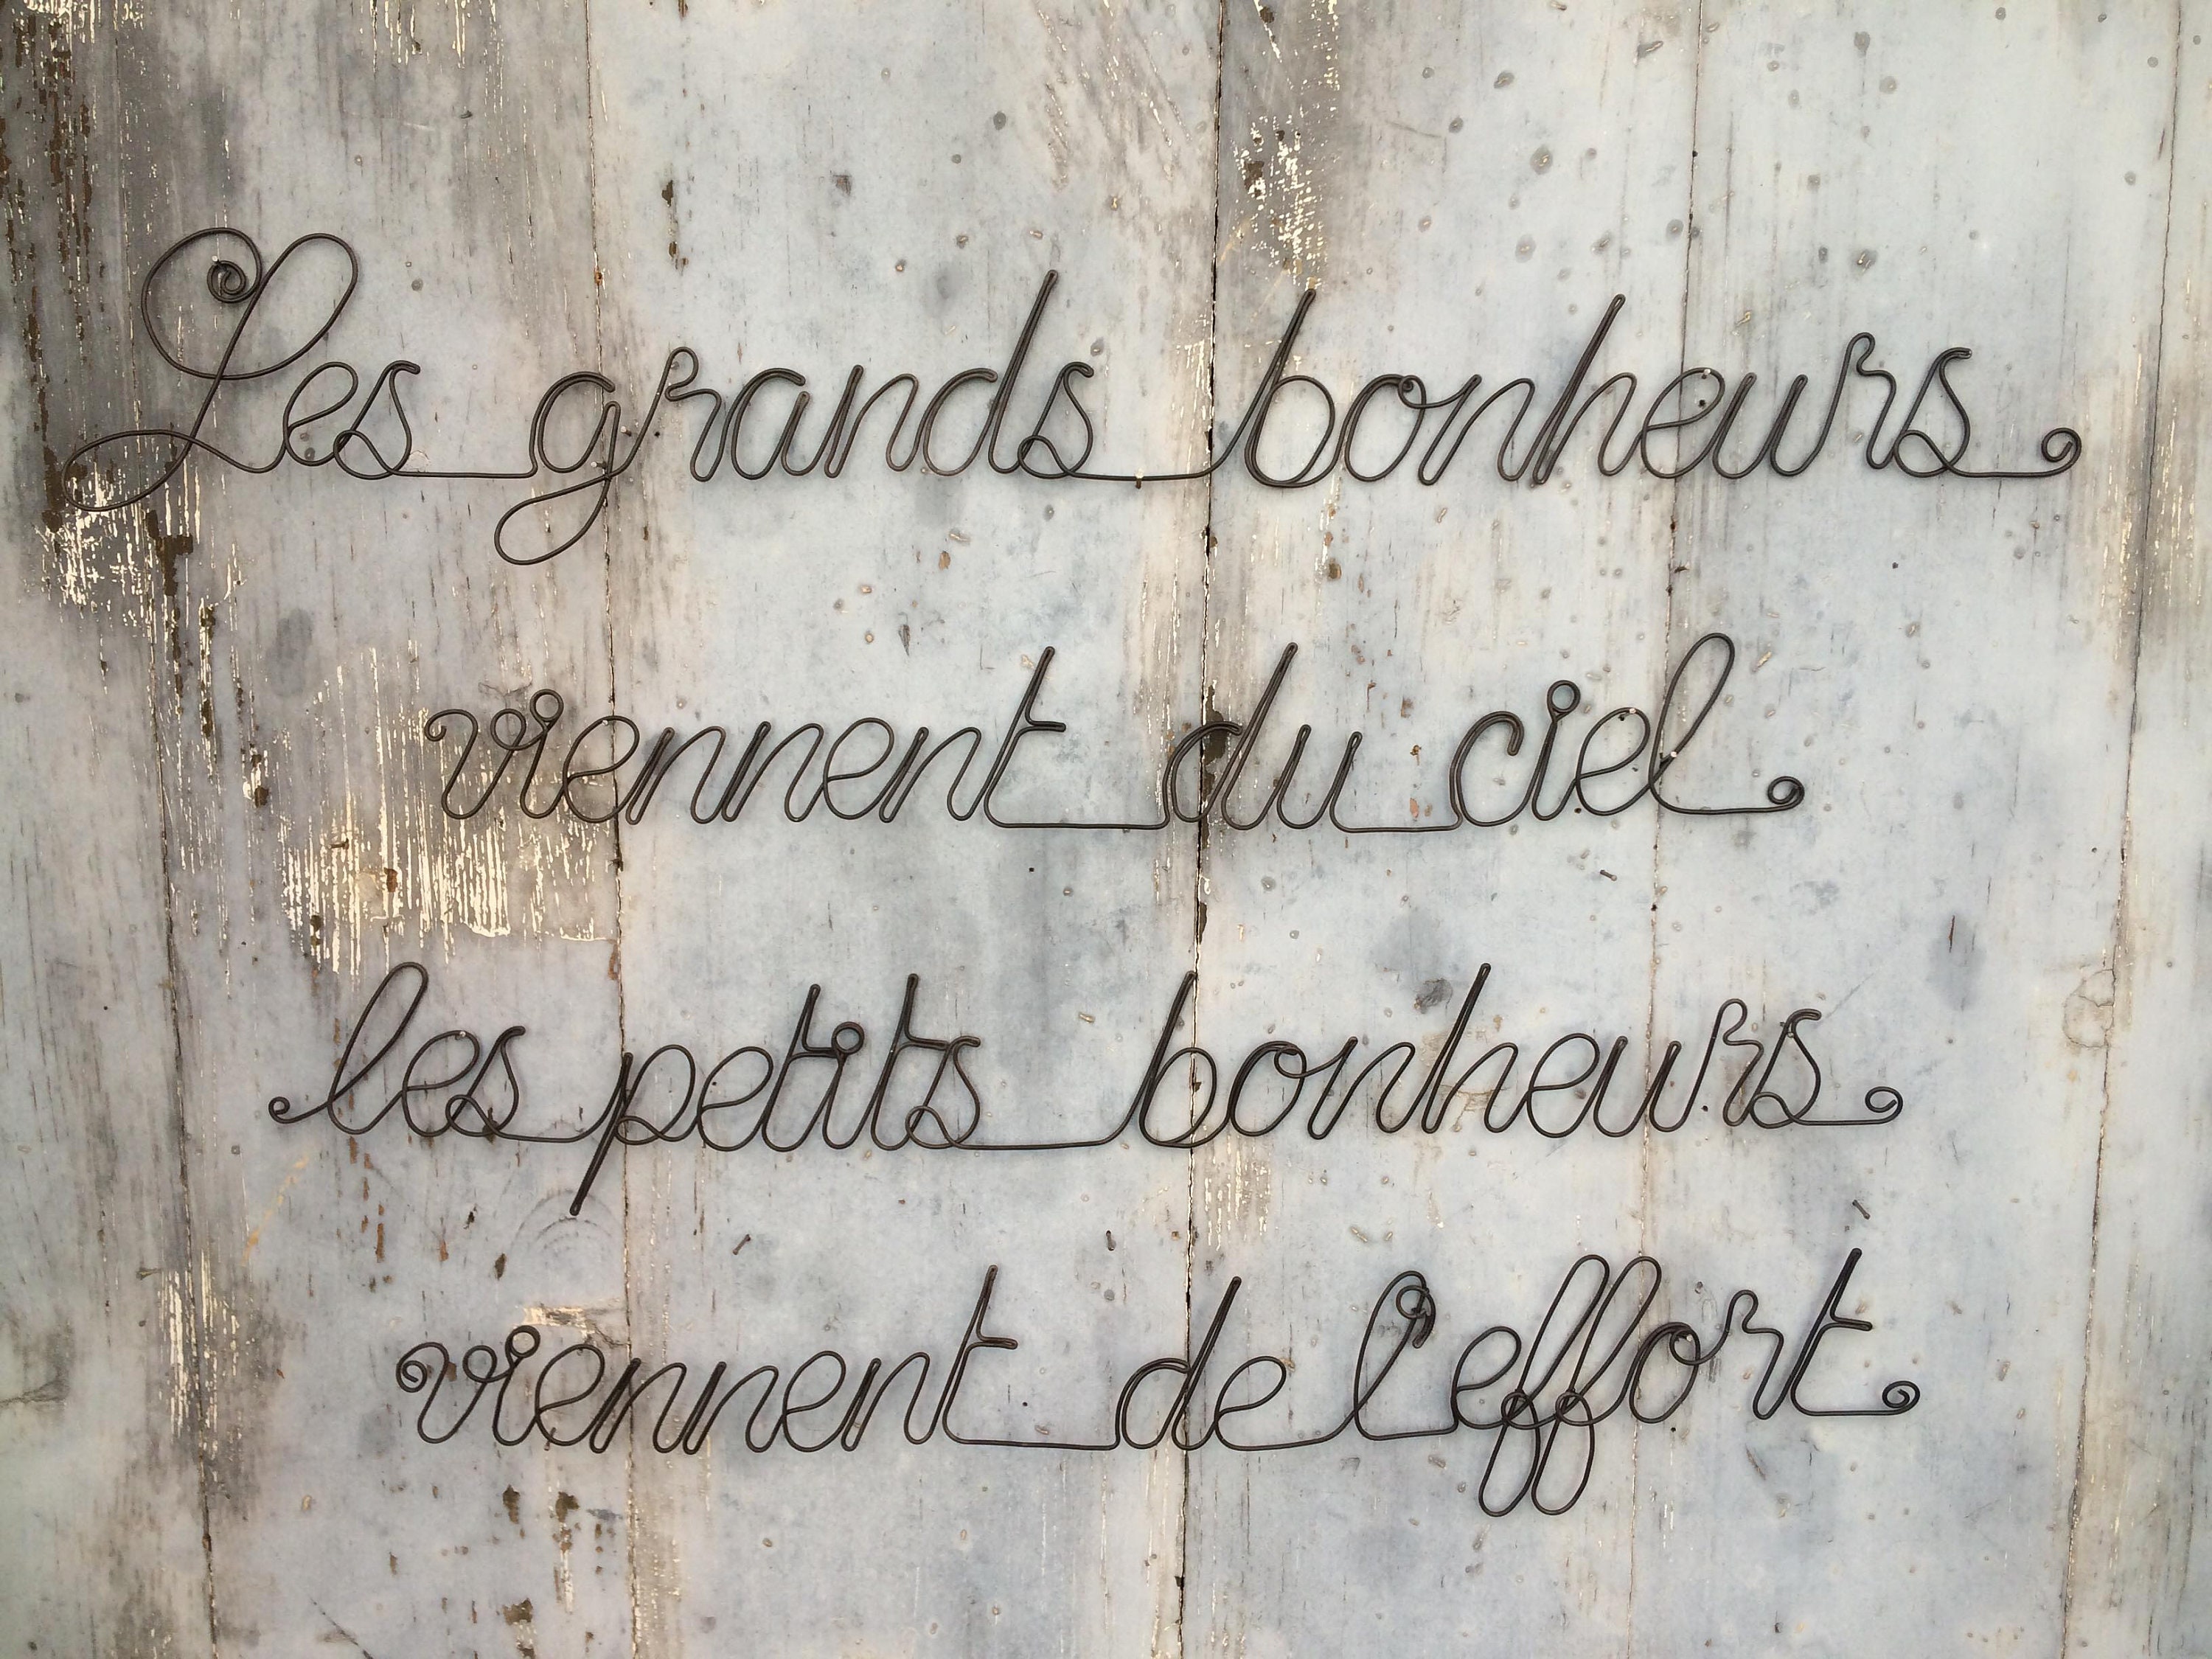 Les grands bonheurs
viennent du ciel
les petits bonheurs
viennent de l'effort